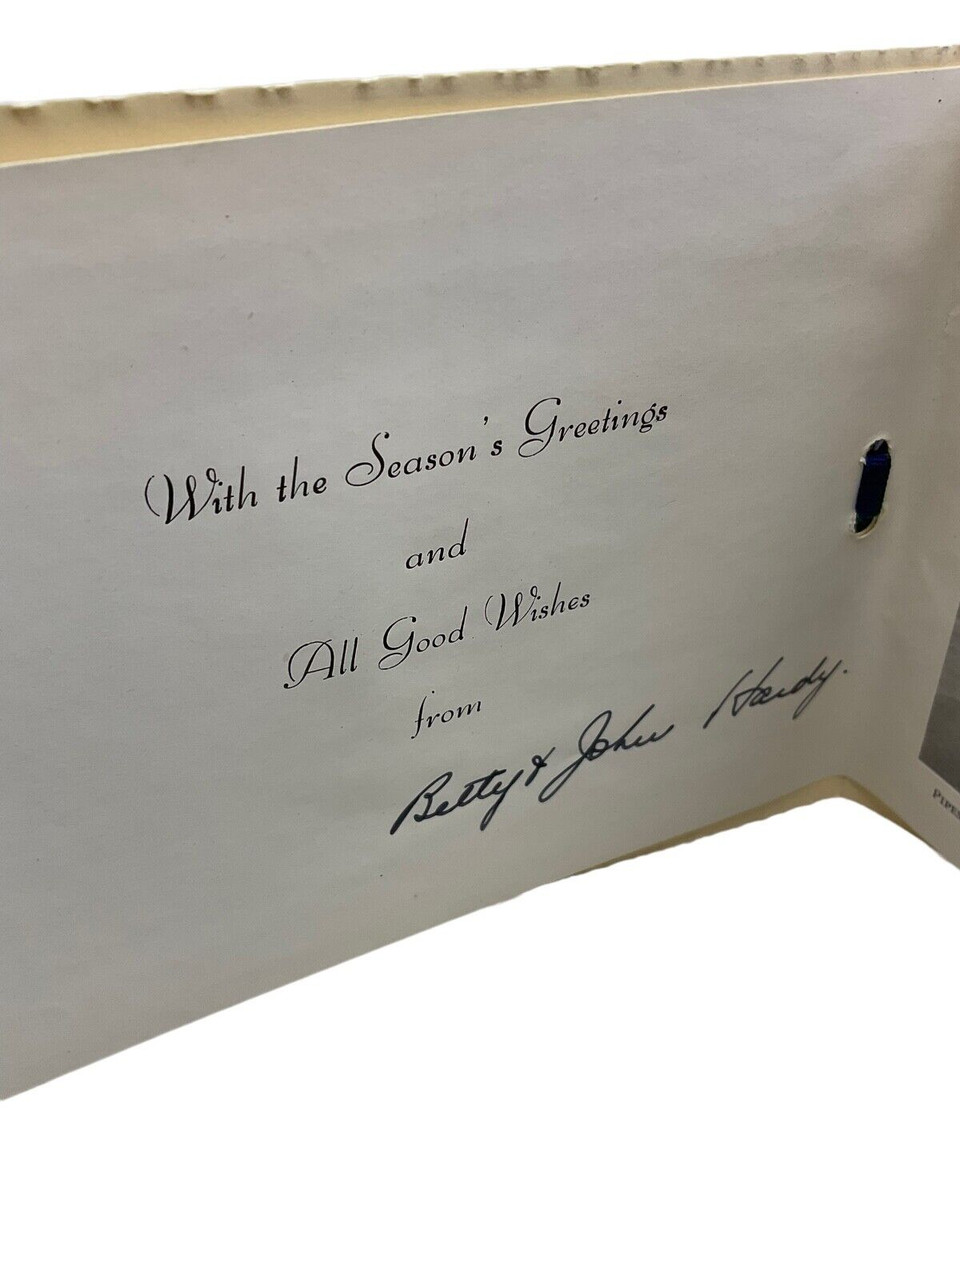 With the Season's Greetings
and
All Good Wishes
from
Betty & John Hardy.